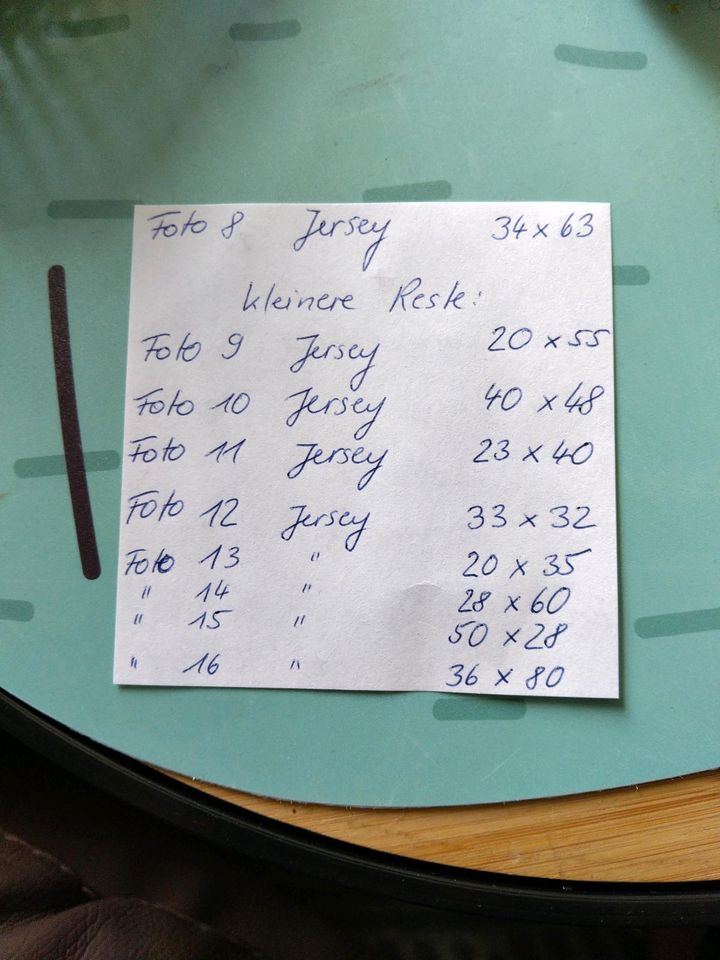 Foto 8 Jersey 34 x 63
kleinere Reste:
Foto 9 Jersey 20 x 55
Foto 10 Jersey 40 x 48
Foto 11 Jersey 23 x 40
Foto 12 Jersey 33 x 32
Foto 13 " 20 x 35
" 14 " 28 x 60
" 15 " 50 x 28
" 16 " 36 x 80